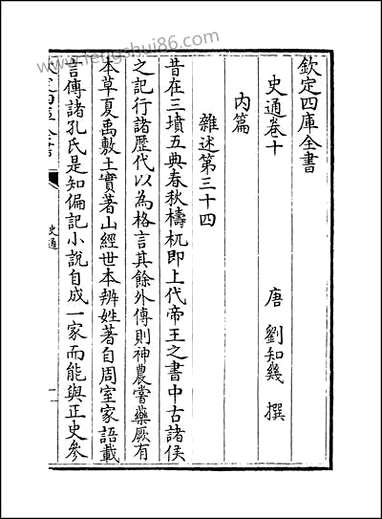 欽定四庫全書
史通卷十
唐 劉知幾 撰
内篇
雜述第三十四
昔在三墳五典春秋檮杌即上代帝王之書中古諸侯
之記行諸歴代以為格言其餘外傳則神農嘗藥厥有
本草夏禹敷土實著山經世本辨姓著自周室家語載
言傳諸孔氏是知偏記小説自成一家而能與正史參
史通
www.fengshui86.com